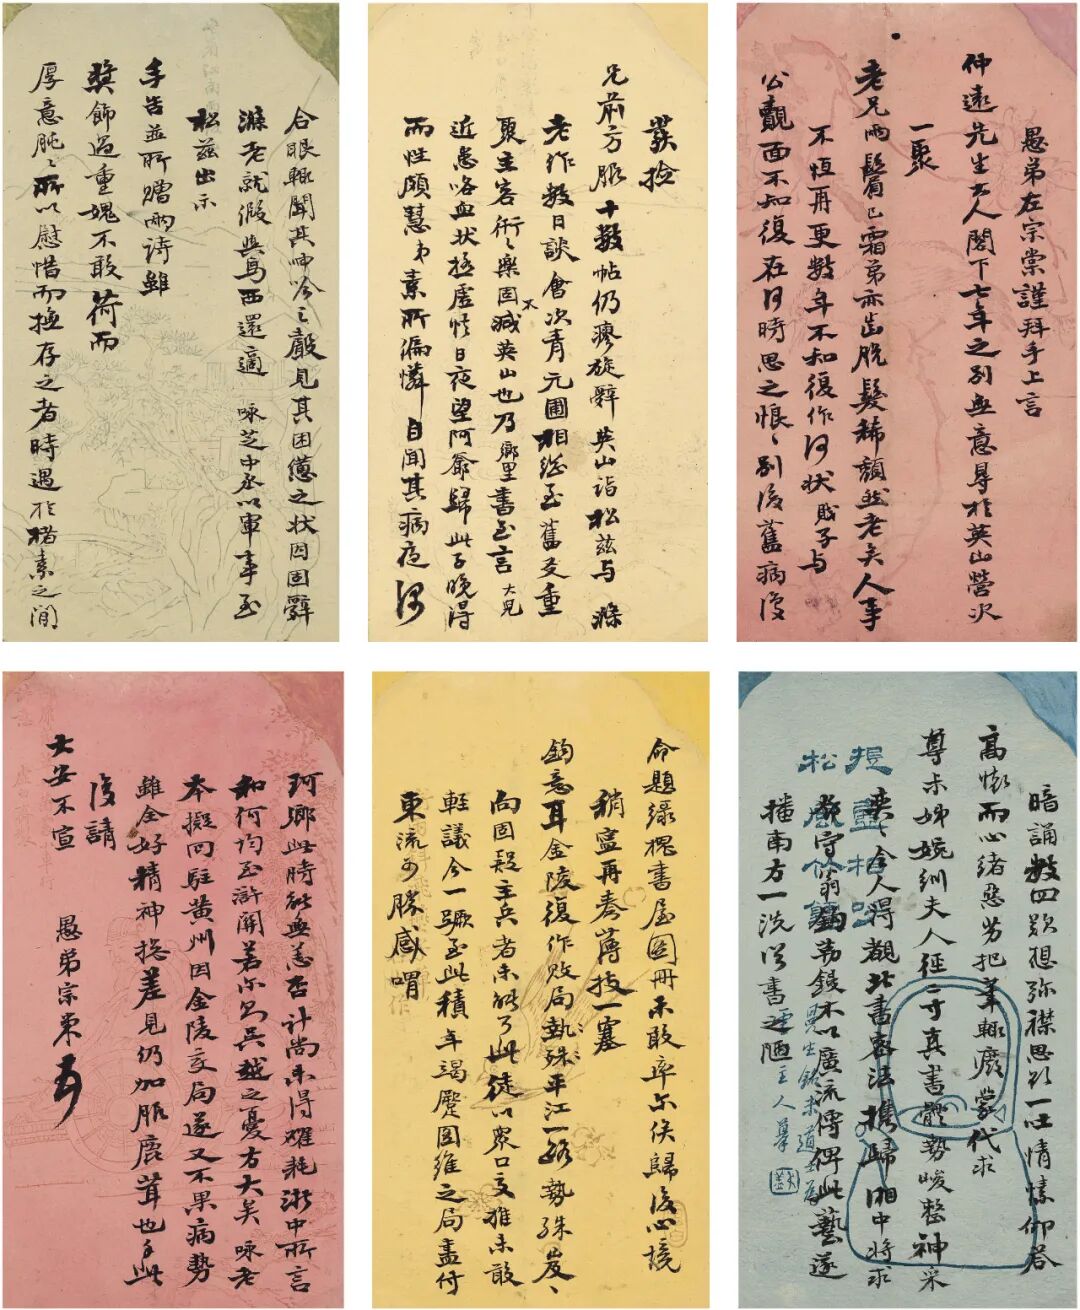 愚弟左宗棠謹拜手上言
仲遠先生大人閣下七年之別無意尋於英山營次
一聚
老兄兩鬢已霜弟亦齒脫髮稀頹然老矣人事
不恆再更數年不知復作何状賤子與
公覿面不知復在何時思之悵〻別後舊病復
發捡
兄前方服十數帖仍瘳旋辭英山詣松茲與滌
老作數日談會次青元圃相繼至舊友重
聚主客術〻樂固不減英山也乃鄉里書至言大兒
近患咯血状極虛憊日夜望阿爺歸此子晚得
而性頗慧弟素所偏憐自聞其病夜深
合眼輒聞其呻吟之聲見其困憊之状因固辭
滌老就假與烏西還適 咏芝中丞以軍事至
松茲出示
手告並所贈兩詩雖
獎飾過重媿不敢荷而
厚意肫〻所以慰惜而撫存之者時遇於楮素之間
暗誦數四欵想弥襟思欲一吐情愫仰答
高懷而心緒惡劣把筆輒廢蒙代求
尊未姊婉紃夫人徑二寸真書體勢峻整神采
奕〻令人得觀北書密法携歸湘中將求
守翁鉤勒鋟木以廣流傳俾此藝遂
播南方一洗俗書之陋
提壺相呼
松風竹爐
命題綠槐書屋圖冊不敢率尔俟歸後心境
稍寧再奏薄技一塞
鈞意耳金陵復作敗局執殊平江一路勢殊岌〻
向固疑主兵者未能了此徒以衆口交推未敢
輕議今一蹶至此積年竭蹷圖維之局盡付
東流可勝感喟
珂鄉此時能無恙否計尚未得耗浙中所言
和何均至滸關若尔則吳越之憂方大矣 咏老
本擬回駐黄州因金陵變局遂又不果病勢
雖全好精神總差見仍加服鹿茸也手此
復請
大安不宣 愚弟宗棠